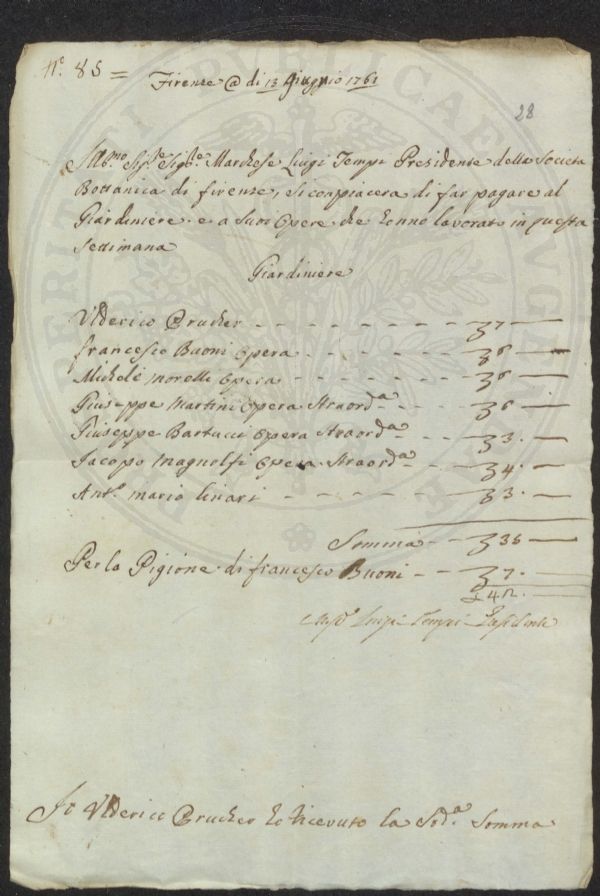 N.° 85 =
Firenze @ di 13 Giugno 1761
28
Ill.mo Sig.re Sig.re Marchese Luigi Tempi Presidente della Societa
Bottanica di firenze, si conpiacera di far pagare al
Giardiniere e a Suoi Opere che hanno lavorato in questa
Settimana
Giardiniere
Ulderico Prucher - - - - - - 7 —
francesco Buoni Opera - - - - - 6 —
Michele Morelli Opera - - - - - 6 —
Giuseppe Martini Opera Straord.a - - - 6 —
Giuseppe Bartucci Opera Straord.a - - - 3. —
Jacopo Magnolfi Opera Straord.a - - 4. —
Ant.o Maria linari - - - - - 3. —
Somma - - 35 —
Per la Pigione di francesco Buoni - - 7. —
£ 42. —
Luigi Tempi
Io Ulderico Prucher ho ricevuto la Sod.a Somma
PERITI PUBLICAE